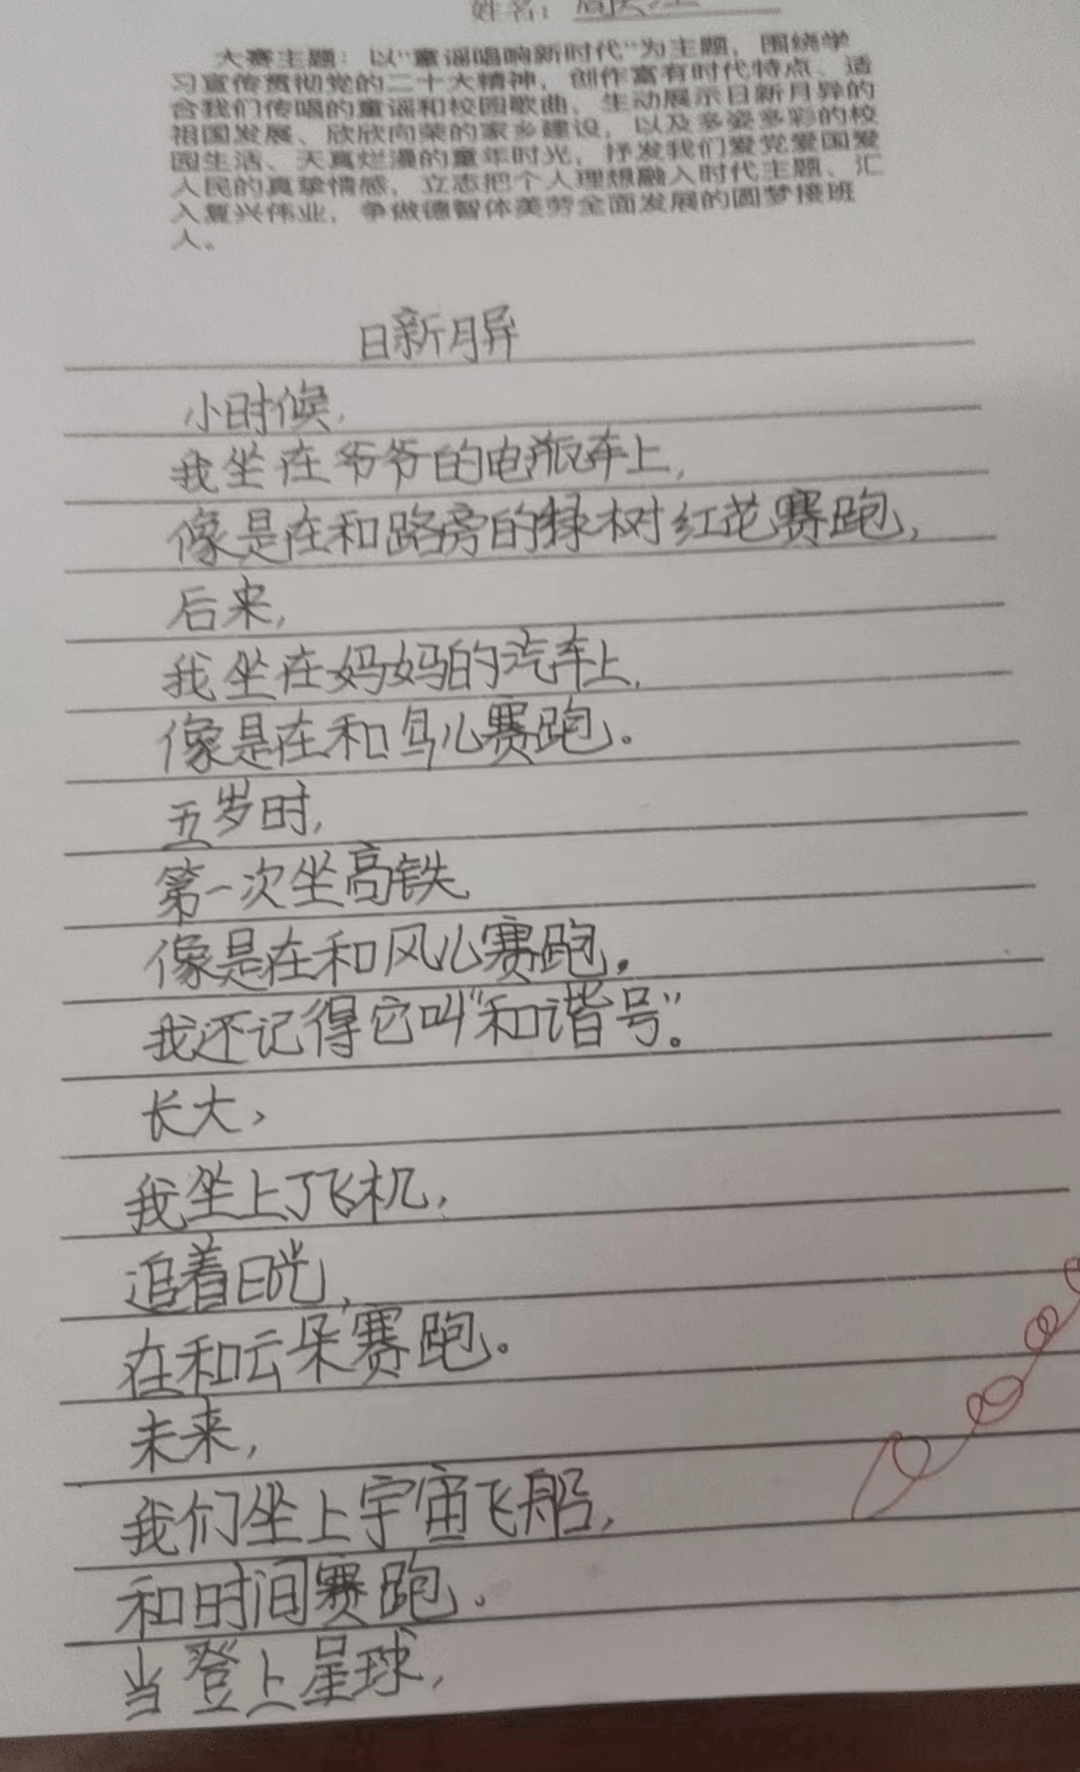 姓名：
大赛主题：以“童谣唱响新时代”为主题，围绕学
习宣传贯彻党的二十大精神，创作富有时代特点、适
合我们传唱的童谣和校园歌曲，生动展示日新月异的
祖国发展、欣欣向荣的家乡建设，以及多姿多彩的校
园生活、天真烂漫的童年时光，抒发我们爱党爱国爱
人民的真挚情感，立志把个人理想融入时代主题、汇
入复兴伟业，争做德智体美劳全面发展的圆梦接班
人。
日新月异
小时候，
我坐在爷爷的电瓶车上，
像是在和路旁的绿树红花赛跑，
后来，
我坐在妈妈的汽车上，
像是在和鸟儿赛跑。
五岁时，
第一次坐高铁
像是在和风儿赛跑。
我还记得它叫“和谐号”。
长大，
我坐上了飞机，
追着日光，
在和云朵赛跑。
未来，
我们坐上宇宙飞船，
和时间赛跑。
当登上星球，